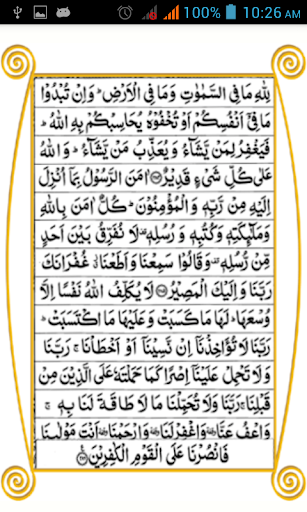 100% 10:26 AM
لِلّٰهِ مَا فِی السَّمٰوٰتِ وَمَا فِی الْاَرْضِ ؕ وَاِنْ تُبْدُوْا
مَا فِیْۤ اَنْفُسِكُمْ اَوْ تُخْفُوْهُ یُحَاسِبْكُمْ بِهِ اللّٰهُ ؕ
فَیَغْفِرُ لِمَنْ یَّشَآءُ وَ یُعَذِّبُ مَنْ یَّشَآءُ ؕ وَ اللّٰهُ
عَلٰی كُلِّ شَیْءٍ قَدِیْرٌ ﴿۲۸۴﴾ اٰمَنَ الرَّسُوْلُ بِمَاۤ اُنْزِلَ
اِلَیْهِ مِنْ رَّبِّهٖ وَ الْمُؤْمِنُوْنَ ؕ كُلٌّ اٰمَنَ بِاللّٰهِ
وَمَلٰٓئِكَتِهٖ وَ كُتُبِهٖ وَ رُسُلِهٖ ۟ لَا نُفَرِّقُ بَیْنَ اَحَدٍ
مِّنْ رُّسُلِهٖ ۟ وَ قَالُوْا سَمِعْنَا وَ اَطَعْنَا ٘ غُفْرَانَكَ
رَبَّنَا وَ اِلَیْكَ الْمَصِیْرُ ﴿۲۸۵﴾ لَا یُكَلِّفُ اللّٰهُ نَفْسًا اِلَّا
وُسْعَهَا ؕ لَهَا مَا كَسَبَتْ وَ عَلَیْهَا مَا اكْتَسَبَتْ ؕ
رَبَّنَا لَا تُؤَاخِذْنَاۤ اِنْ نَّسِیْنَاۤ اَوْ اَخْطَاْنَا ۚ رَبَّنَا
وَ لَا تَحْمِلْ عَلَیْنَاۤ اِصْرًا كَمَا حَمَلْتَهٗ عَلَی الَّذِیْنَ مِنْ
قَبْلِنَا ۚ رَبَّنَا وَ لَا تُحَمِّلْنَا مَا لَا طَاقَةَ لَنَا بِهٖ ۚ
وَ اعْفُ عَنَّا ۟ وَ اغْفِرْ لَنَا ۟ وَ ارْحَمْنَا ۟ اَنْتَ مَوْلٰىنَا
فَانْصُرْنَا عَلَی الْقَوْمِ الْكٰفِرِیْنَ ﴿۲۸۶﴾